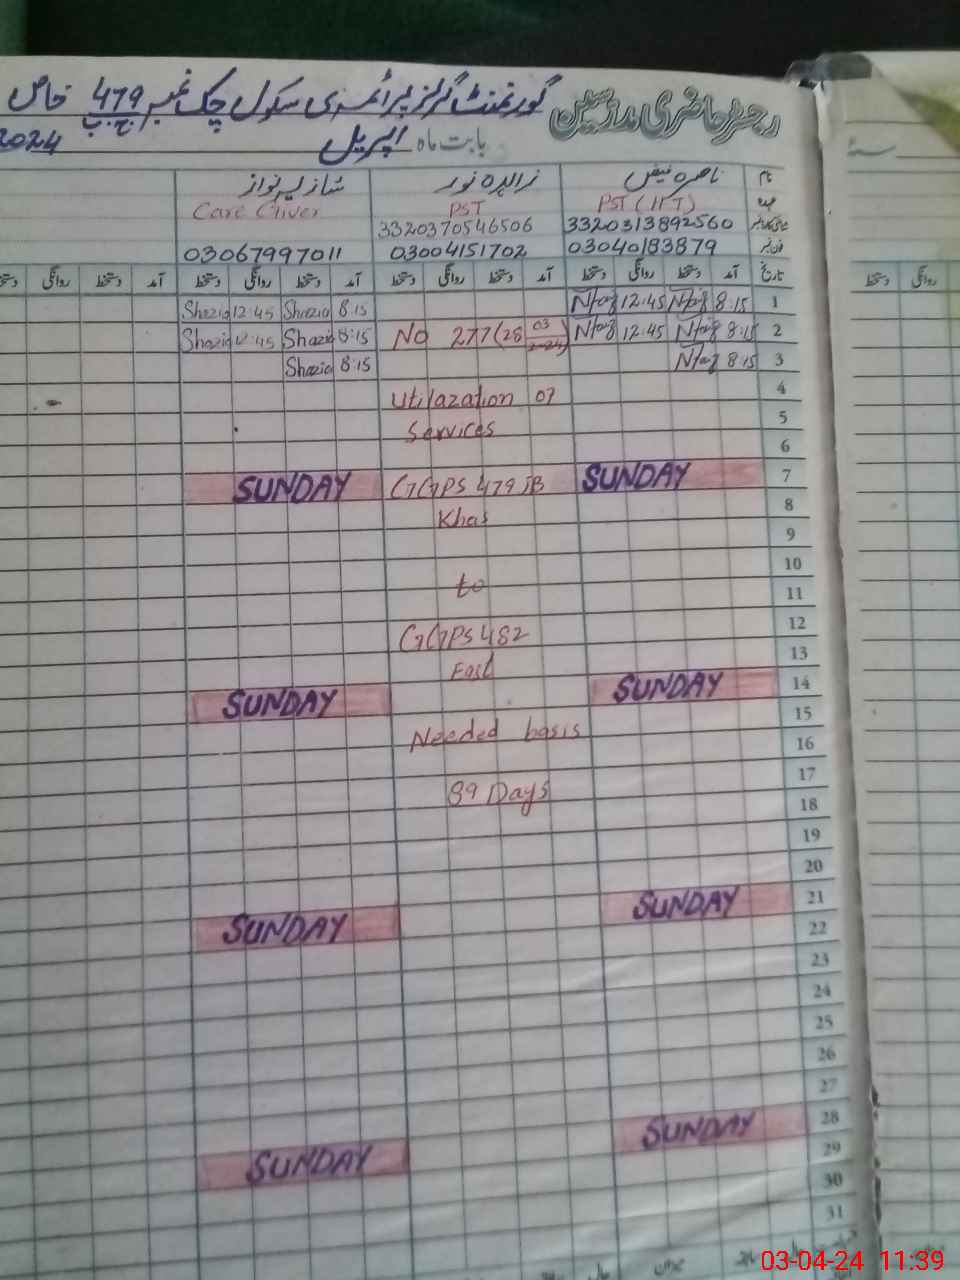 رجسٹر حاضری مدرسین گورنمنٹ گرلز پرائمری سکول چک نمبر 479 ج ب خاص
بابت ماہ اپریل 2024
نام ناصرہ فیض زاہدہ نور شازیہ نواز
عہدہ PST (IFT) PST Care Giver
3320313892560 3320370546506
03040183879 03004151702 03067997011
تاریخ آمد دستخط روانگی دستخط آمد دستخط روانگی دستخط آمد دستخط روانگی دستخط آمد دستخط روانگی دستخط
1 8:15 12:45 8:15 Shazia 12:45 Shazia
2 8:15 12:45 No 277 (28 03 2024) 8:15 Shazia 12:45 Shazia
3 8:15 8:15 Shazia
4 Utilazation of
5 Services
6
7 SUNDAY GGPS 479 JB SUNDAY
8 Khas
9
10 to
11
12 GGPS 482
13 East
14 SUNDAY SUNDAY
15 Needed basis
16
17 89 Days
18
19
20
21 SUNDAY SUNDAY
22
23
24
25
26
27
28 SUNDAY SUNDAY
29
30
31
03-04-24 11:39